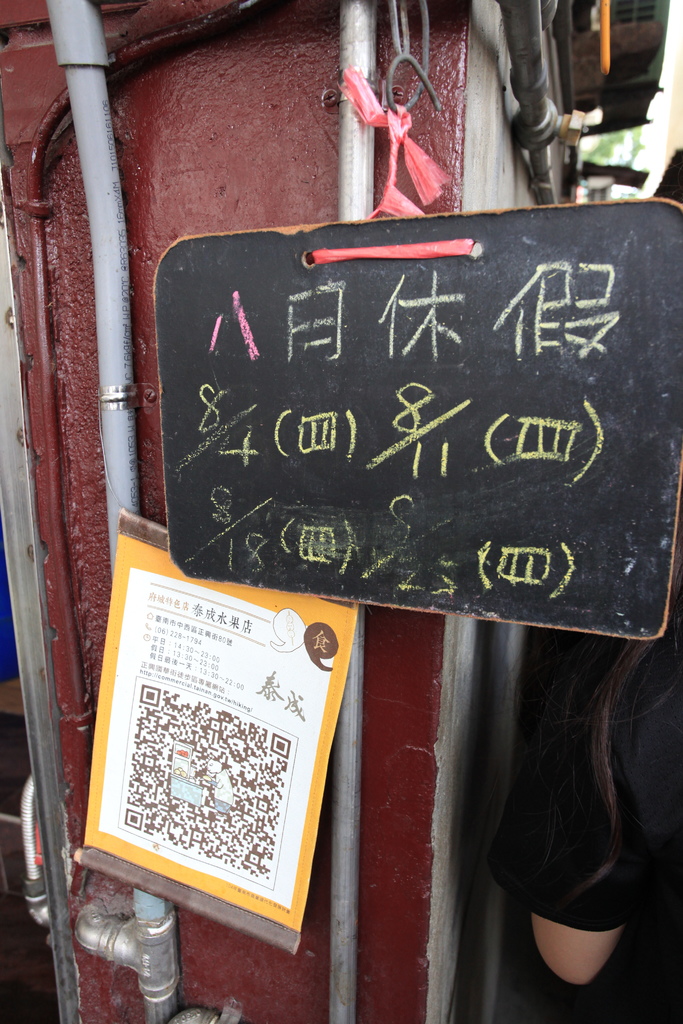 八月休假
8/4(日) 8/11(日)
8/18(日) 8/25(日)
府城特色店 泰成水果店
臺南市中西區正興街80號
(06)228-1794
平日：14:30~23:00
假日：13:30~23:00
假日最後一天：13:30~22:00
正興國華街徒步區專屬網站：
http://commercial.tainan.gov.tw/hiking/
食
泰成